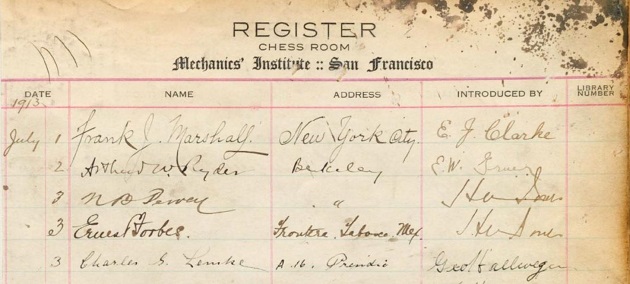 REGISTER
CHESS ROOM
Mechanics' Institute :: San Francisco
DATE NAME ADDRESS INTRODUCED BY LIBRARY NUMBER
1913
July 1 Frank J. Marshall. New York City. E. J. Clarke
2 Arthur W Ryder Berkeley E. W.
3 "
3 Ernest Forbes. Frontera. Tabasco, Mex
3 Charles G. A. 16. Presidio Geo Hallwegen